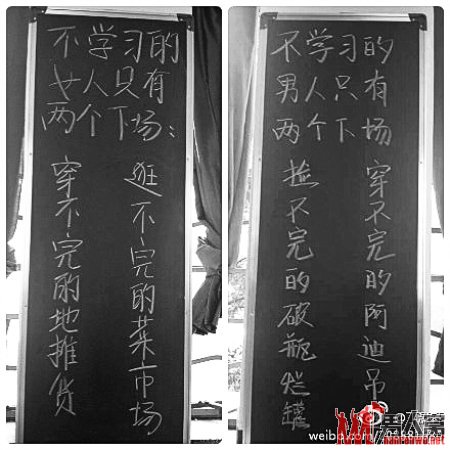 不学习的
女人只有
两个下场:
穿不完的地摊货
逛不完的菜市场
不学习的
男人只有
两个下场
捡不完的破瓶烂罐
穿不完的阿迪吊
男人窝
nanrenwo.net